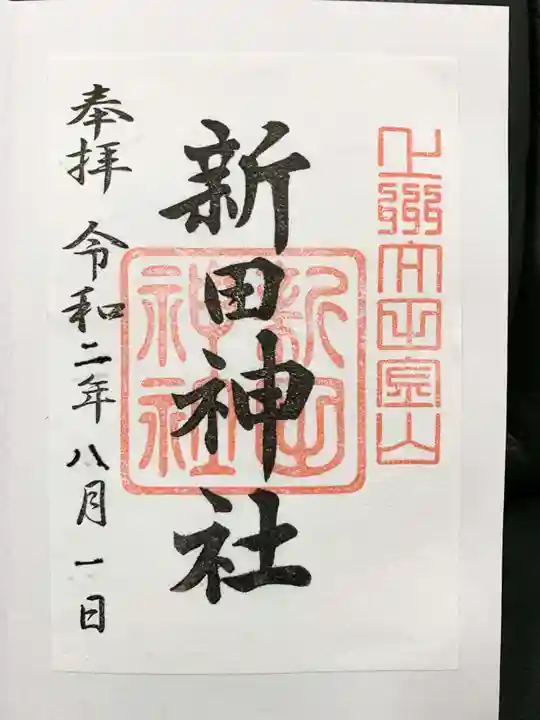 上州太田金山
新田神社
新田
神社
奉拝 令和二年八月一日